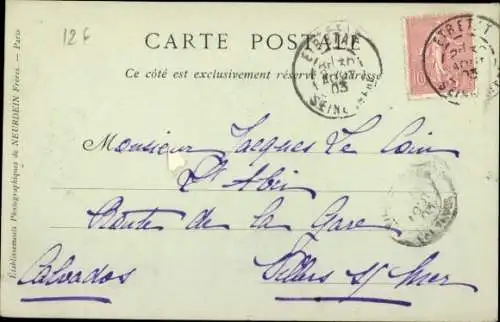 12 €
CARTE POSTALE
Ce côté est exclusivement réservé à l'adresse
ETRETAT
03
SEINE INFRE
ETRETAT
03
SEINE
10
Monsieur Jacques Le Coin
St Abin
Route de la Gare
Villers s/ Mer
Calvados
Etablissements Photographiques de NEURDEIN Frères. — Paris